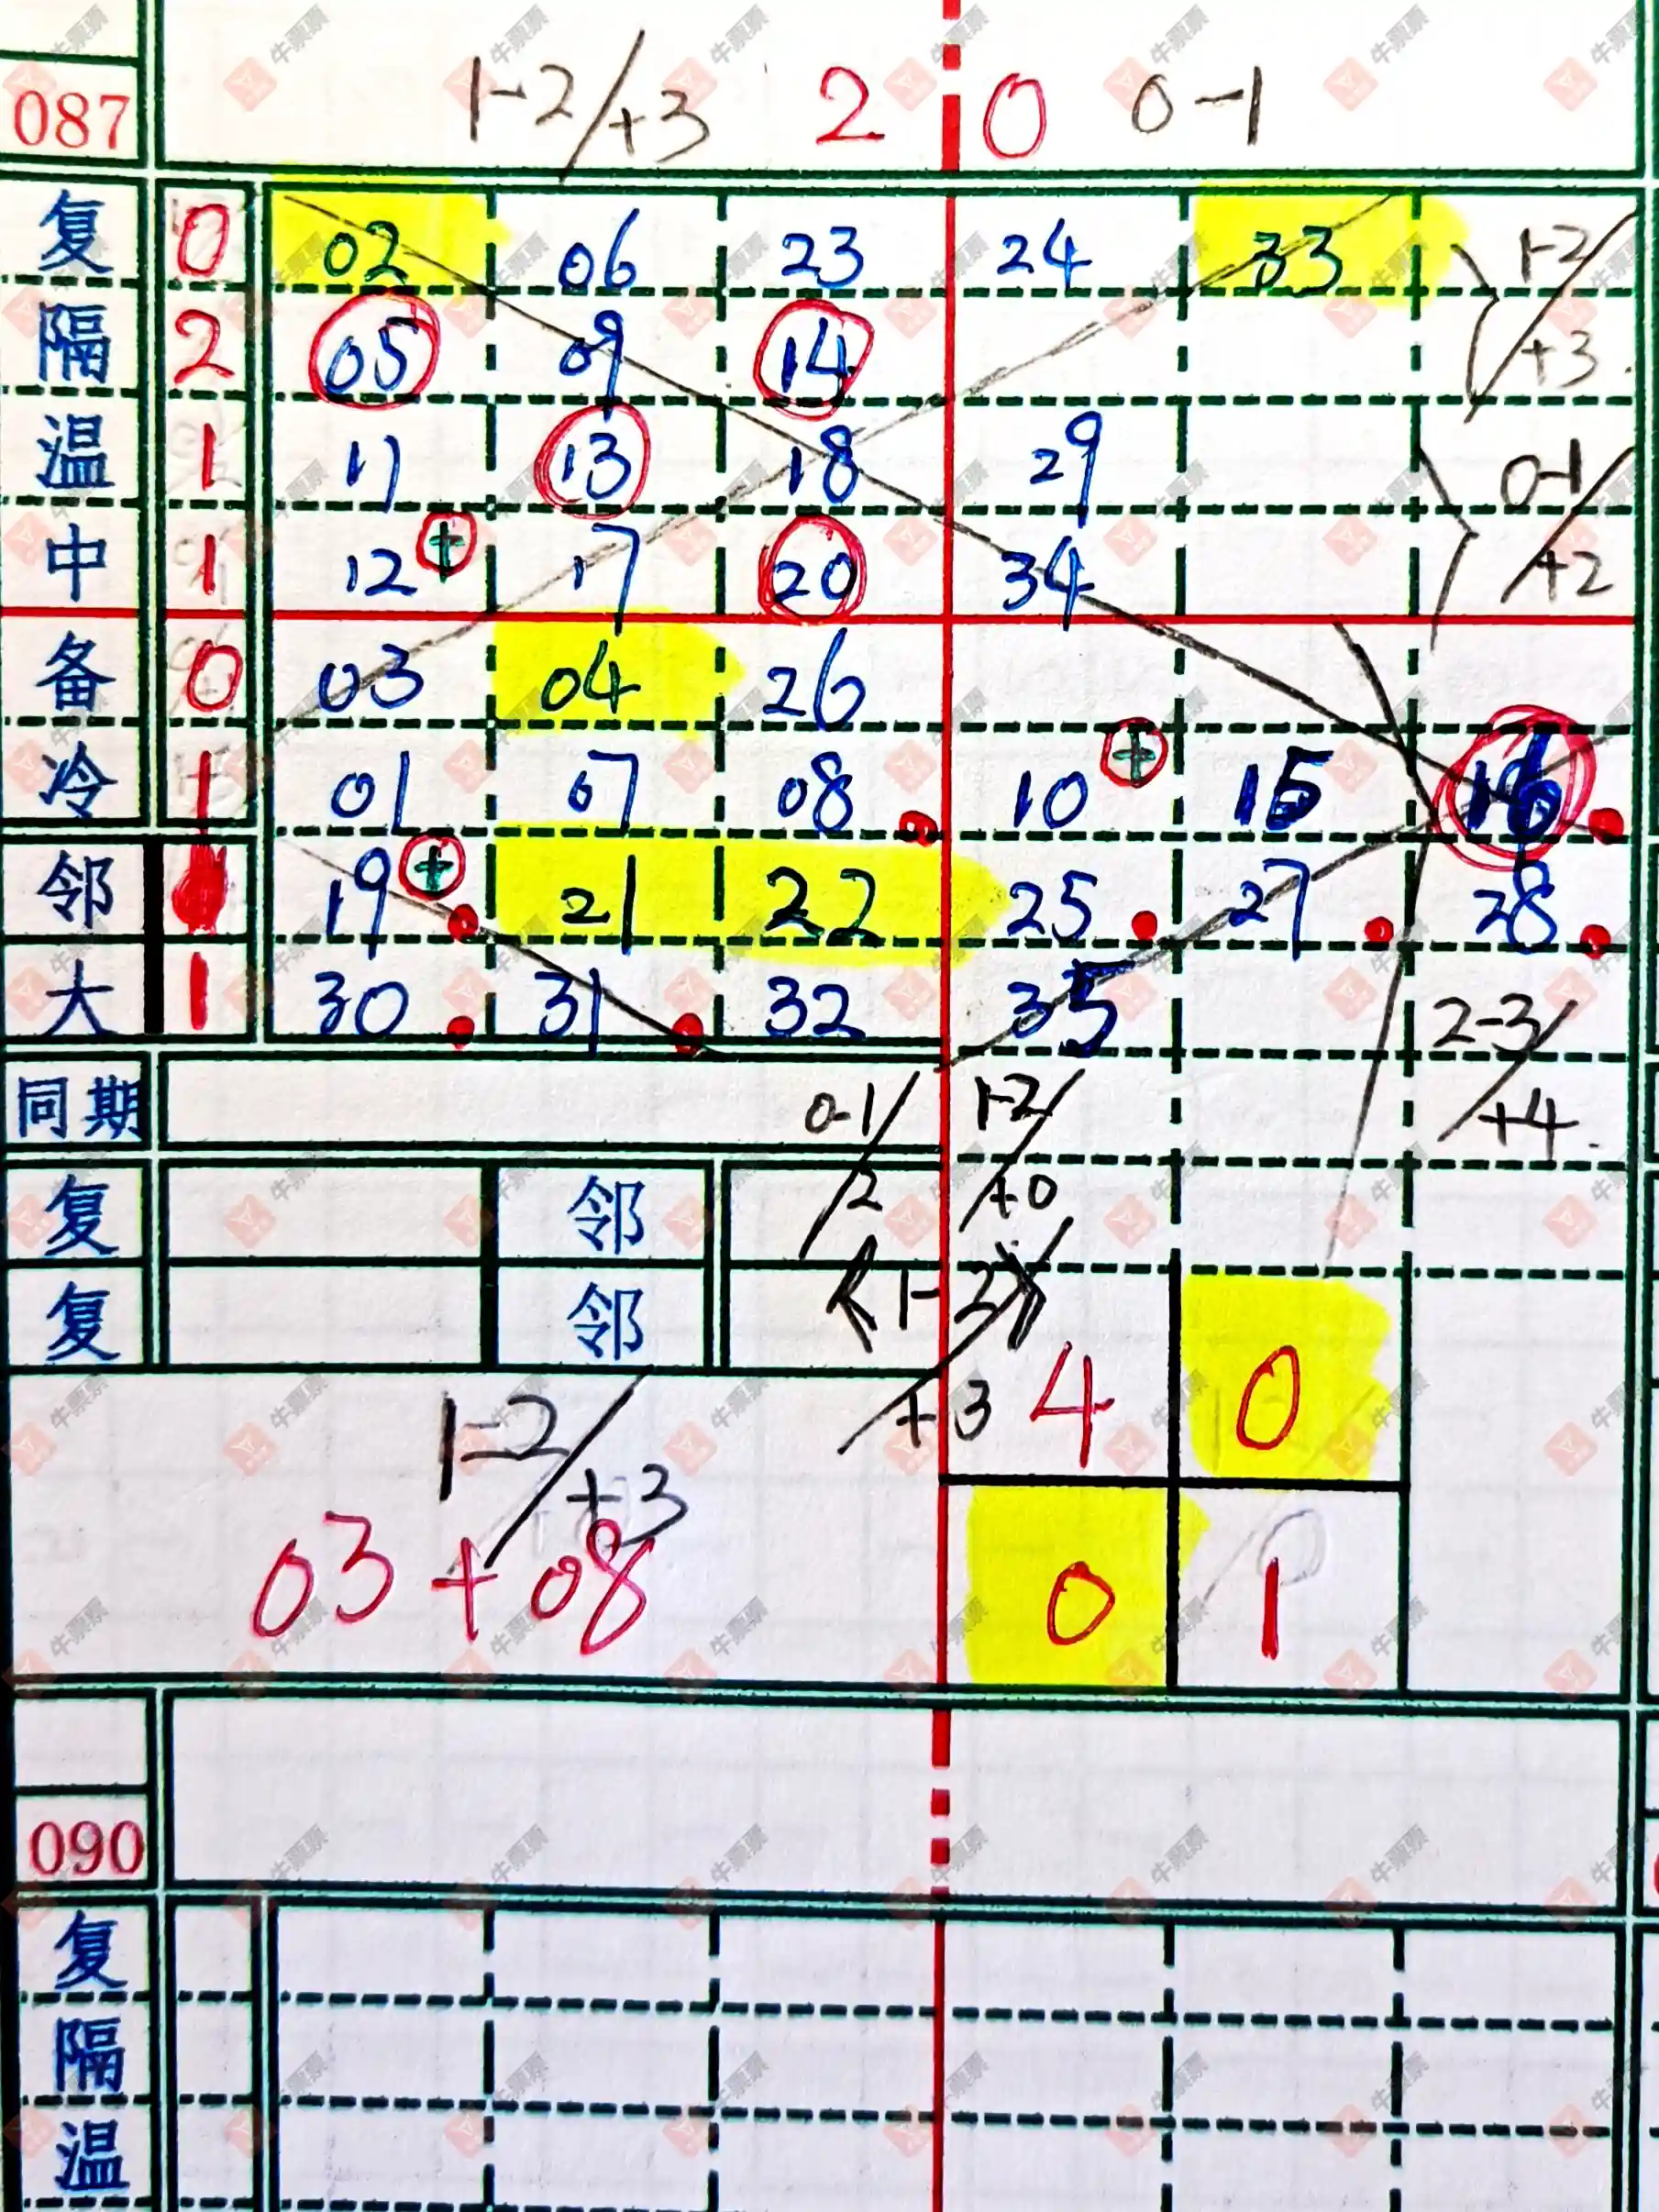 087 1-2/+3 2 0 0-1
复 0 02 06 23 24 33 1-2/+3
隔 2 05 09 14
温 1 11 13 18 29 0-1/+2
中 1 12 + 17 20 34
备 0 03 04 26
冷 1 01 07 08 10 + 15 16
邻 19 + 21 22 25 27 28
大 1 30 31 32 35 2-3/+4
同期 0-1/2 1-2/+0
复 邻
复 邻 1-2/+3
4 0
1-2/+3
03+08 0 1
090
复
隔
温
牛票票